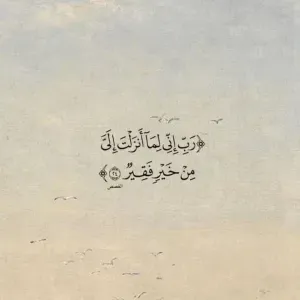 ﴿رَبِّ إِنِّي لِمَآ أَنزَلْتَ إِلَيَّ
مِنْ خَيْرٍ فَقِيرٌ ٢٤﴾
القصص